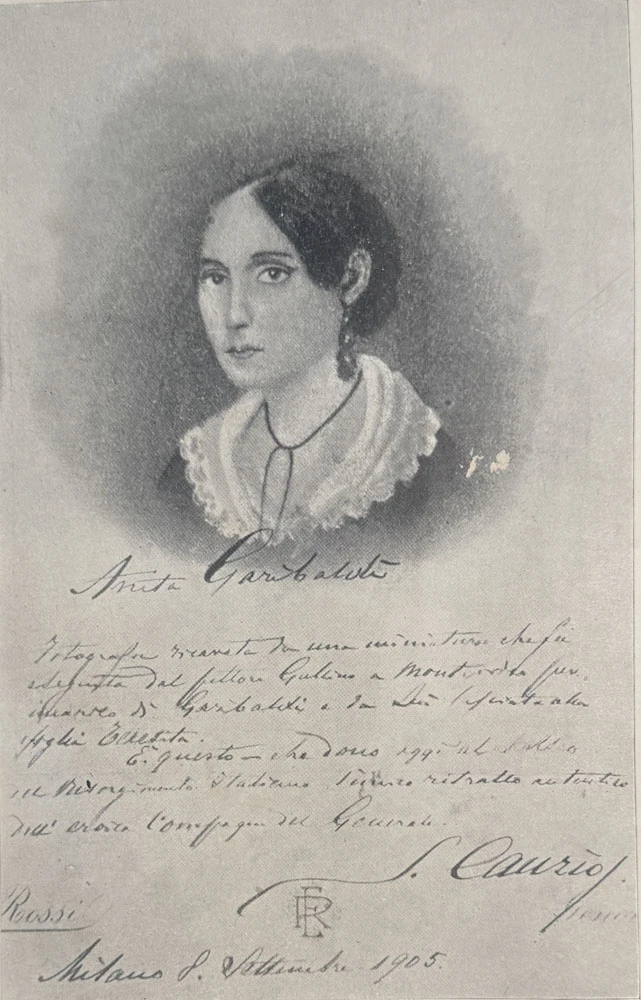 Anita Garibaldi
Fotografia ricavata da una miniatura che fu
eseguita dal pittore Gallino a Montevideo per
incarico di Garibaldi e da Lui lasciata alla
figlia Teresita.
È questo - che dono oggi al
del Risorgimento Italiano l'unico ritratto autentico
dell' eroica Compagna del Generale.
S. Canzio
Rossi
Milano 8. Settembre 1905.